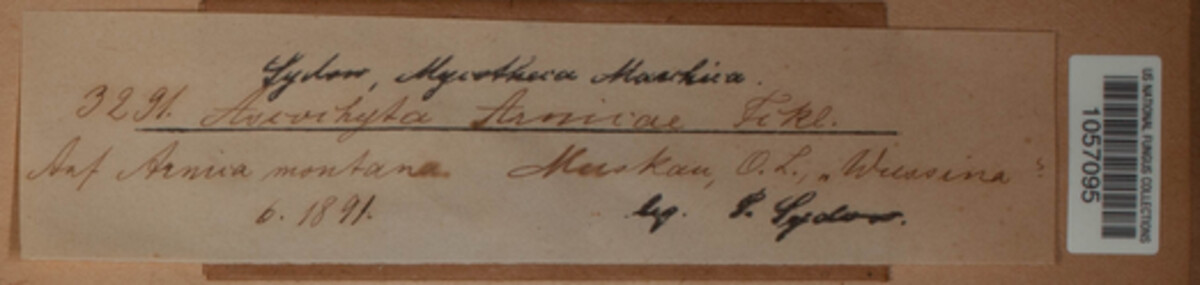 Sydow, Mycotheca Marchica.
3291. Ascochyta Arnicae Fckl.
Auf Arnica montana Muskau, O.L., „Wussina"
6. 1891. leg. P. Sydow.
US NATIONAL FUNGUS COLLECTIONS
1057095